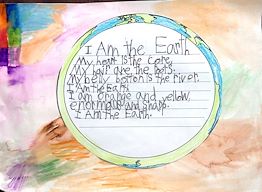 I Am the Earth
My heart is the core.
My hair are the
My belly botton is the river.
I Am the Earth
I am orange and yellow
enormous and sharp.
I Am the Earth.